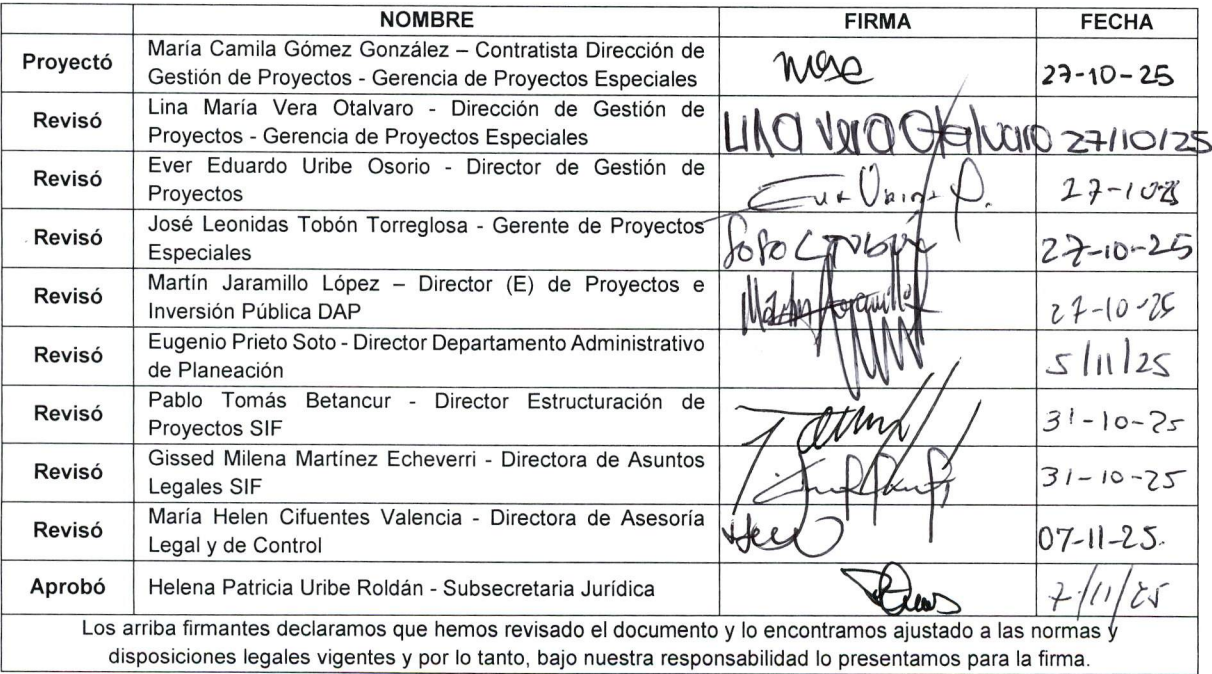 NOMBRE FIRMA FECHA
Proyectó María Camila Gómez González – Contratista Dirección de
Gestión de Proyectos - Gerencia de Proyectos Especiales 27-10-25
Revisó Lina María Vera Otalvaro - Dirección de Gestión de
Proyectos - Gerencia de Proyectos Especiales Lina Vera Otalvaro 27/10/25
Revisó Ever Eduardo Uribe Osorio - Director de Gestión de
Proyectos 27-1025
Revisó José Leonidas Tobón Torreglosa - Gerente de Proyectos
Especiales 27-10-25
Revisó Martín Jaramillo López – Director (E) de Proyectos e
Inversión Pública DAP Martín Jaramillo L 27-10-25
Revisó Eugenio Prieto Soto - Director Departamento Administrativo
de Planeación 5/11/25
Revisó Pablo Tomás Betancur - Director Estructuración de
Proyectos SIF 31-10-25
Revisó Gissed Milena Martínez Echeverri - Directora de Asuntos
Legales SIF 31-10-25
Revisó María Helen Cifuentes Valencia - Directora de Asesoría
Legal y de Control 07-11-25.
Aprobó Helena Patricia Uribe Roldán - Subsecretaria Jurídica 7/11/25
Los arriba firmantes declaramos que hemos revisado el documento y lo encontramos ajustado a las normas y
disposiciones legales vigentes y por lo tanto, bajo nuestra responsabilidad lo presentamos para la firma.